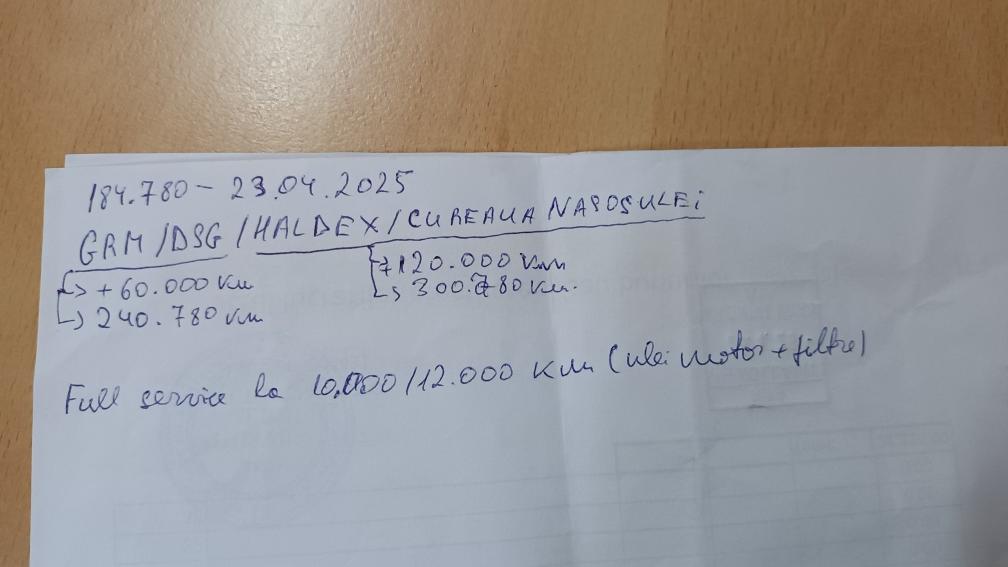 184.780 - 23.04.2025
GRM/DSG/HALDEX/CUREAUA NAPOSULEI
↳ +60.000 Km
↳ 240.780 km
+120.000 km
↳ 300.780 km.
Full service la 10.000/12.000 Km (ulei motor + filtre)